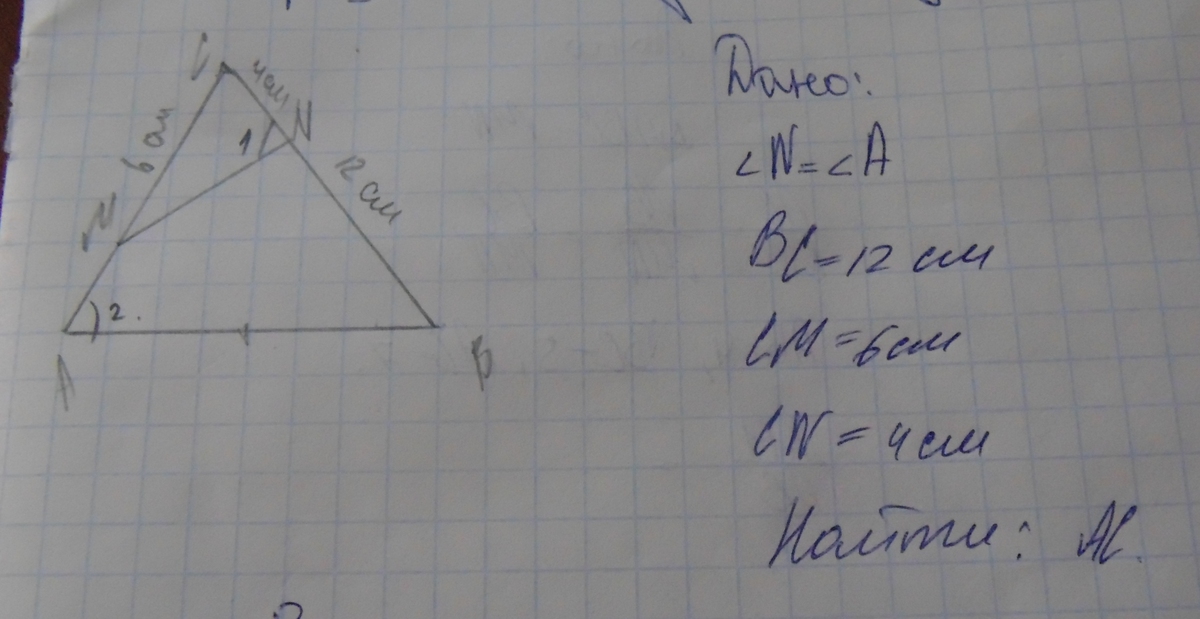 C
4см
N
6 см
1
12 см
M
2.
A
B
Дано:
∠N=∠A
BC=12 см
CM=6см
CN=4см
Найти: AC.